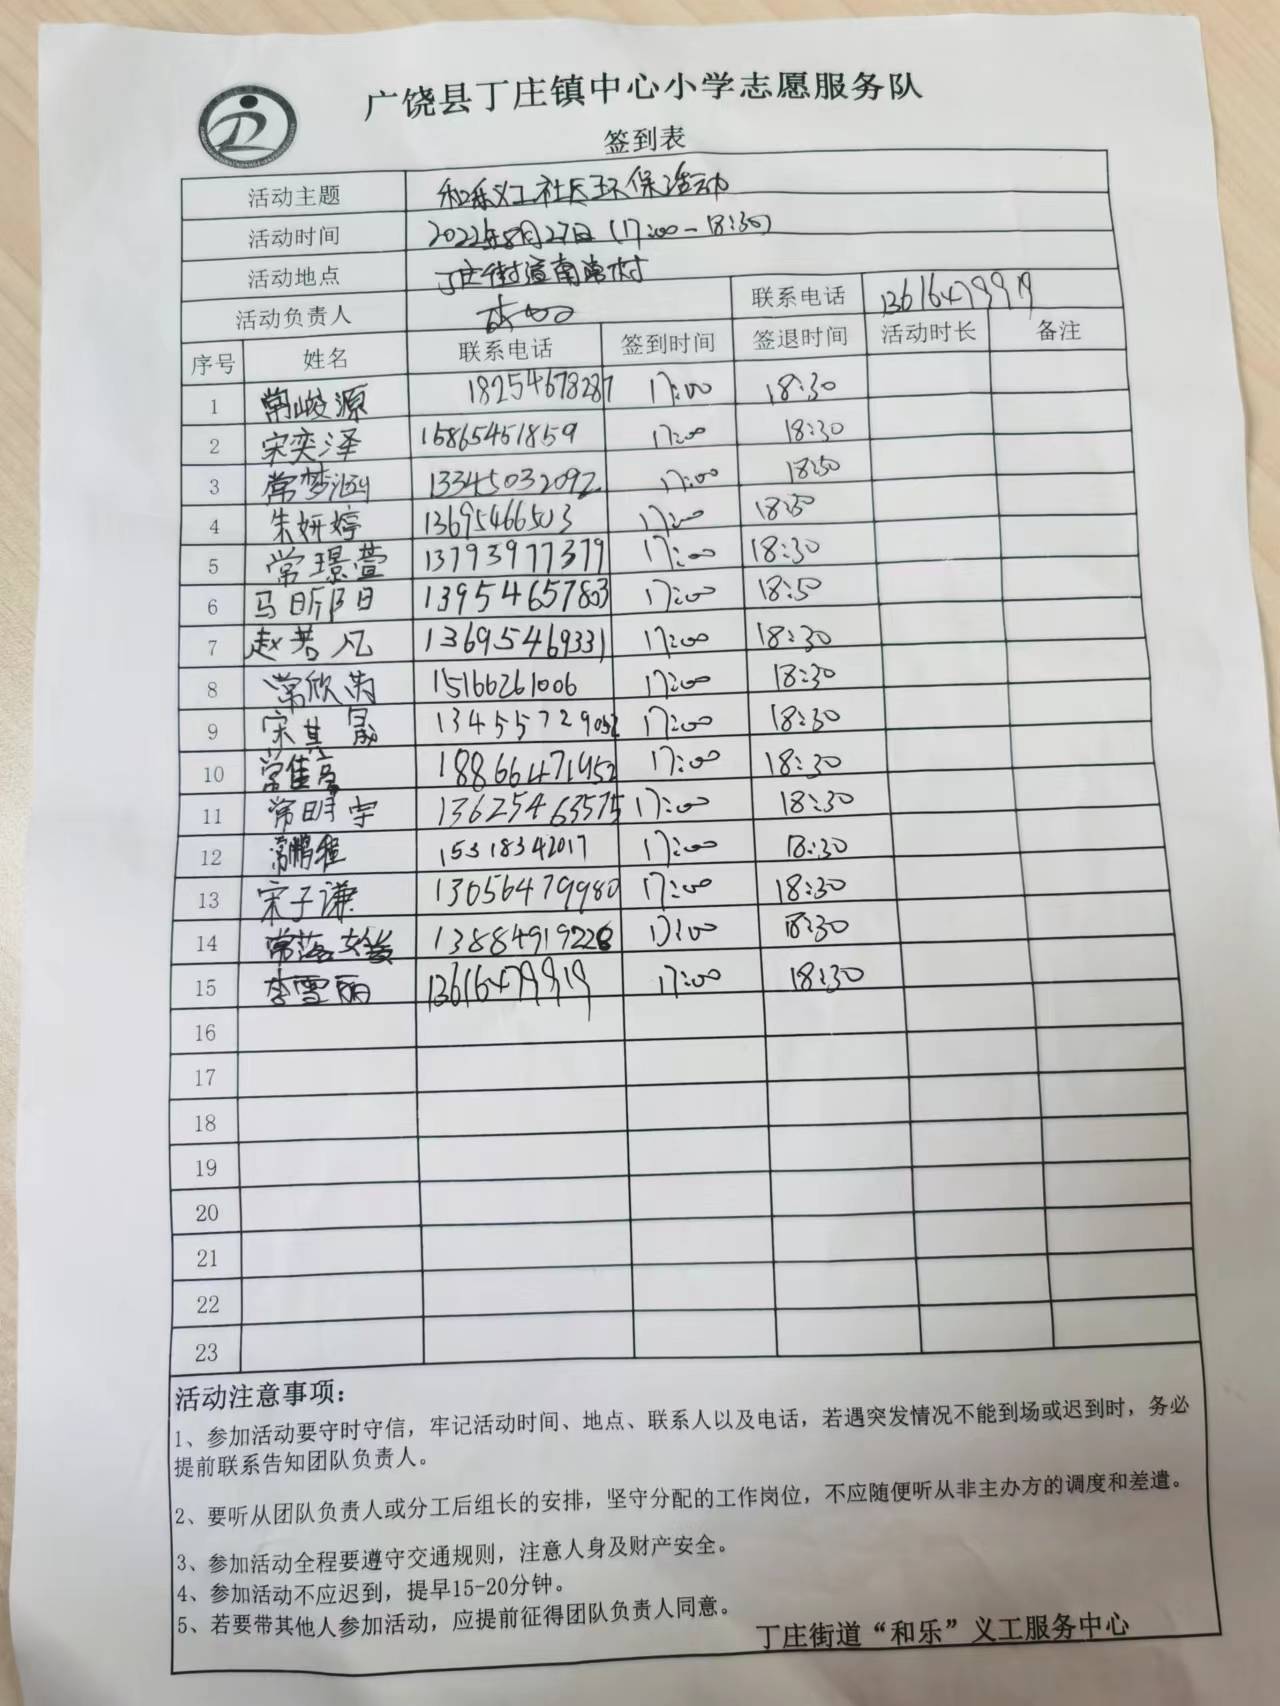 广饶县丁庄镇中心小学志愿服务队
签到表
活动主题 和乐义工社区环保活动
活动时间 2022年8月27日（17:00-18:30）
活动地点 丁庄街道南常村
活动负责人 联系电话 13616479919
序号 姓名 联系电话 签到时间 签退时间 活动时长 备注
1 常峻源 18254678287 17:00 18:30
2 宋奕泽 15865451859 17:00 18:30
3 常梦涵 13345032092 17:00 18:30
4 朱妍婷 13695466503 17:00 18:30
5 常璟萱 13793977379 17:00 18:30
6 马昕阳 13954657803 17:00 18:30
7 赵若凡 13695469331 17:00 18:30
8 常欣 15166261006 17:00 18:30
9 宋其晟 17:00 18:30
10 常佳 18866471952 17:00 18:30
11 常明宇 13625463575 17:00 18:30
12 常鹏程 15318342017 17:00 18:30
13 宋子谦 13056479980 17:00 18:30
14 常落 13884919226 17:00 18:30
15 李雪丽 13616479919 17:00 18:30
16
17
18
19
20
21
22
23
活动注意事项：
1、参加活动要守时守信，牢记活动时间、地点、联系人以及电话，若遇突发情况不能到场或迟到时，务必
提前联系告知团队负责人。
2、要听从团队负责人或分工后组长的安排，坚守分配的工作岗位，不应随便听从非主办方的调度和差遣。
3、参加活动全程要遵守交通规则，注意人身及财产安全。
4、参加活动不应迟到，提早15-20分钟。
5、若要带其他人参加活动，应提前征得团队负责人同意。
丁庄街道“和乐”义工服务中心